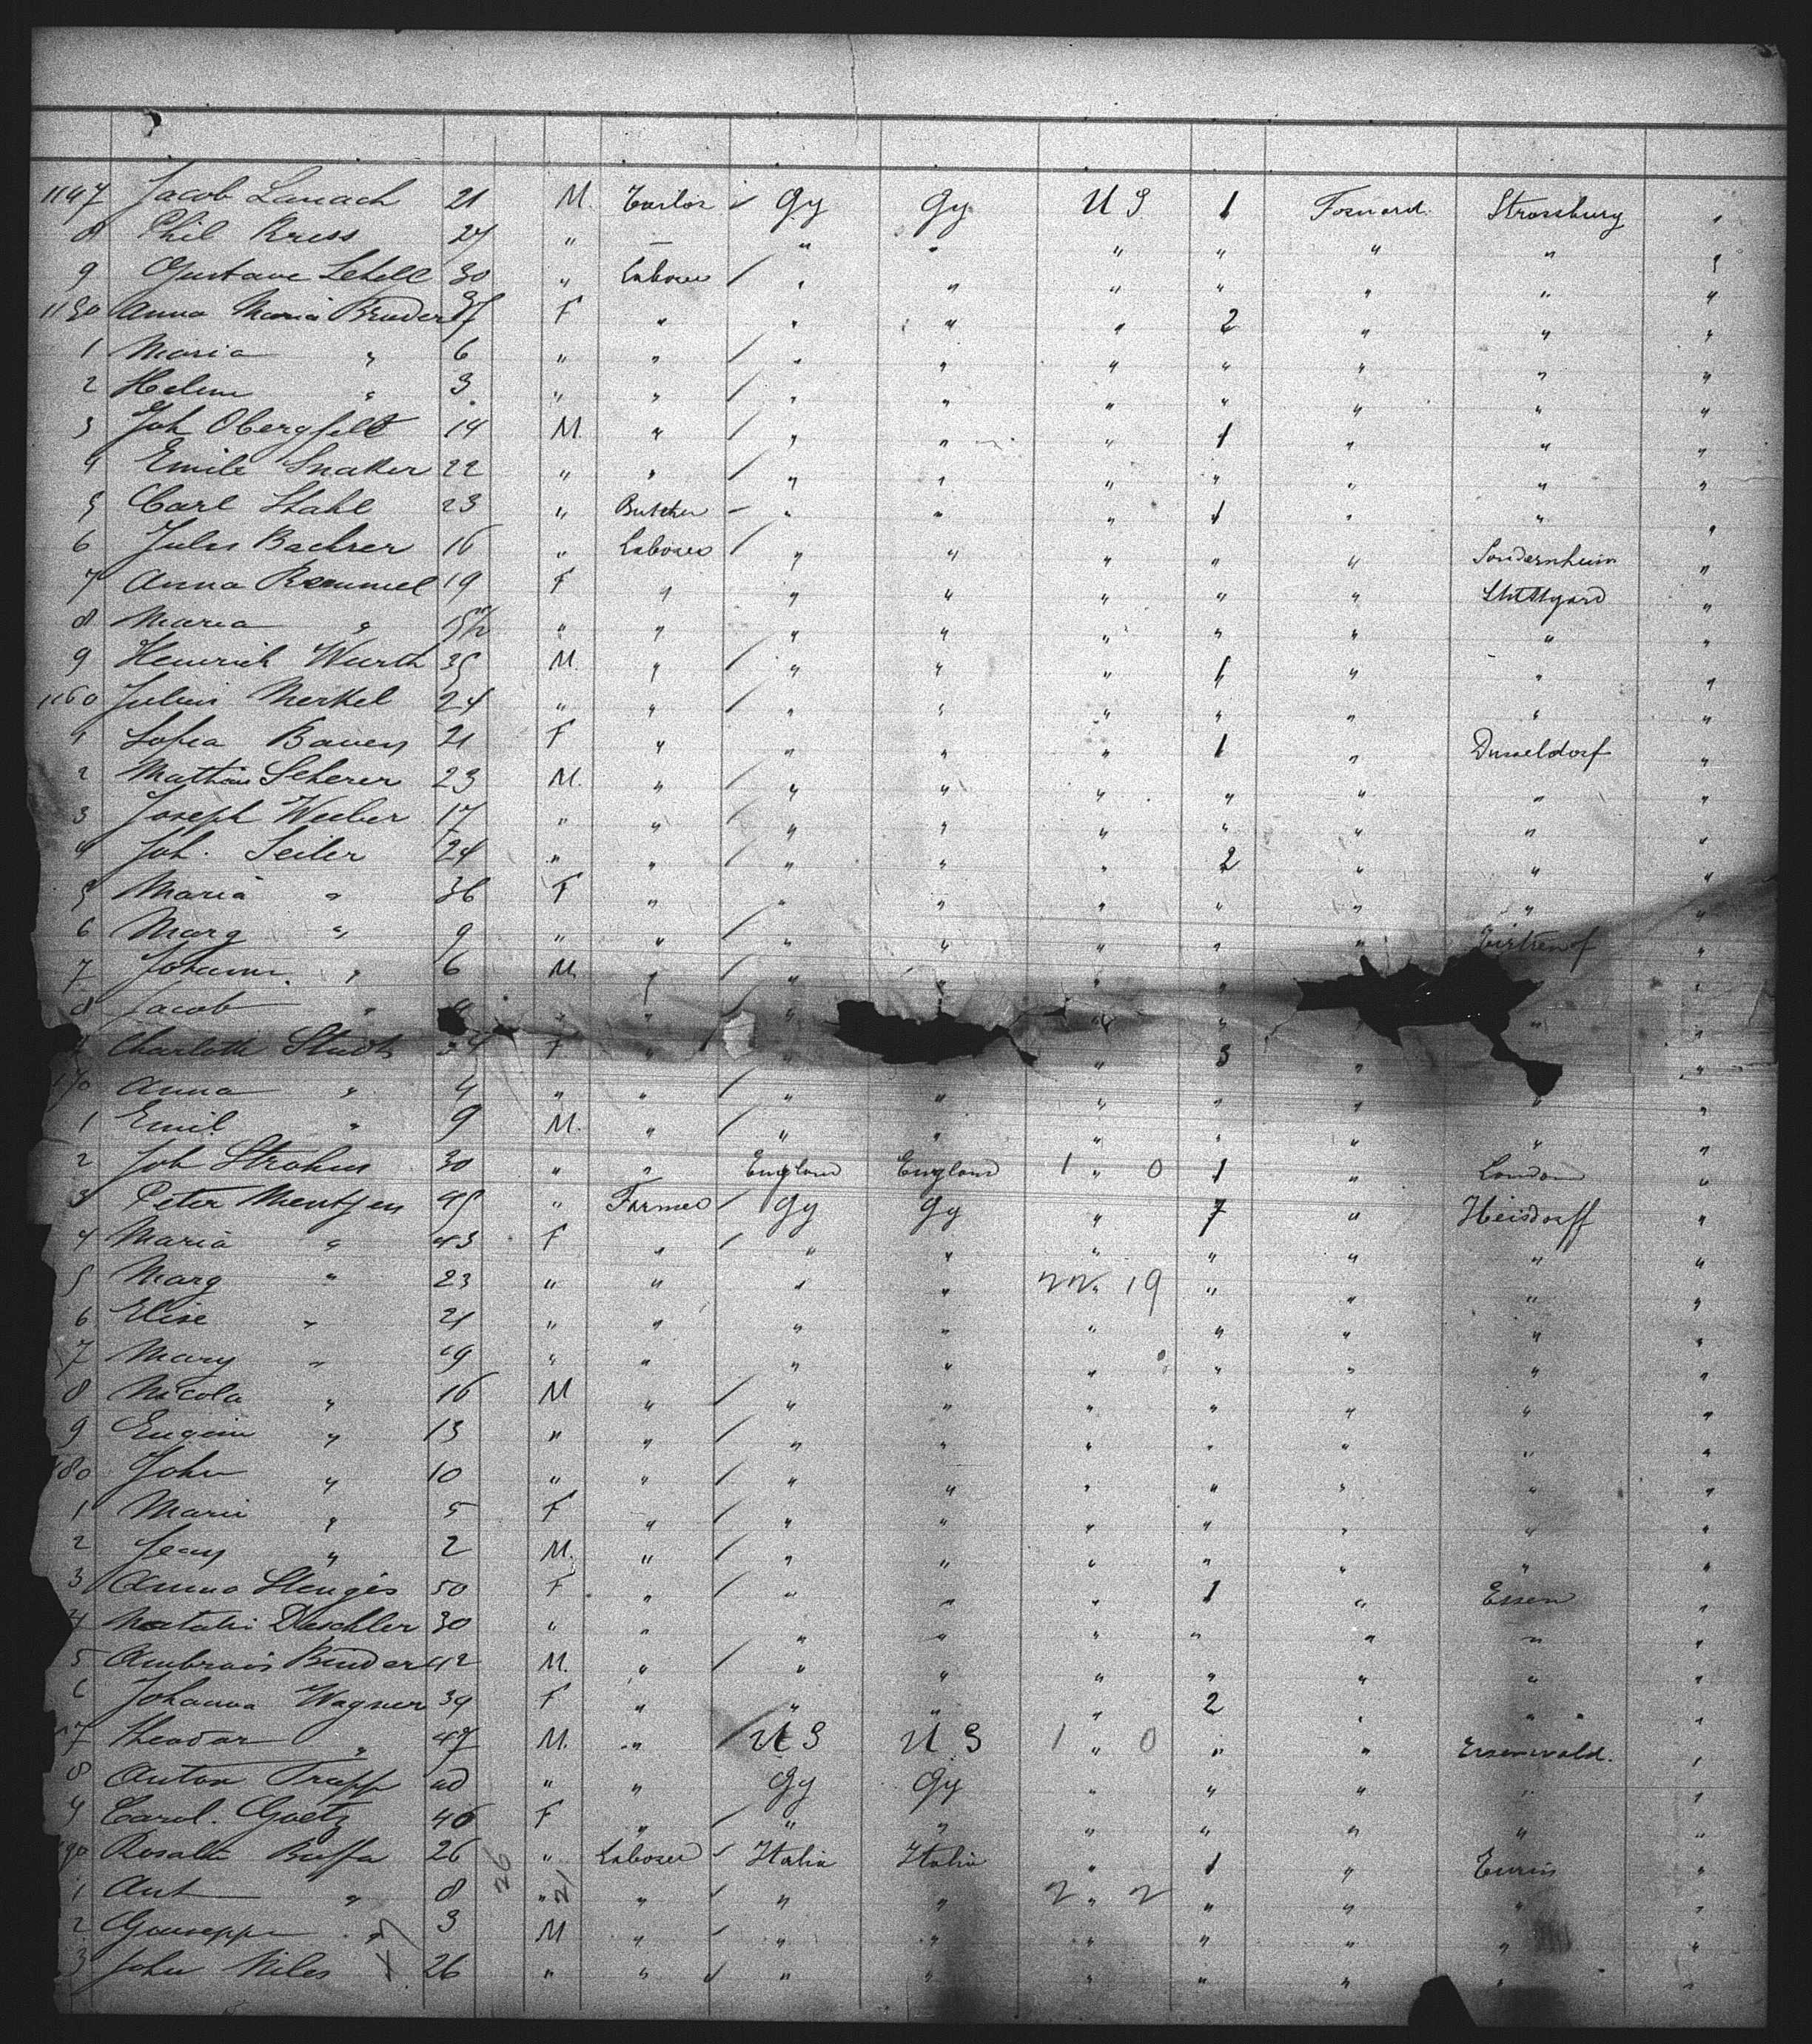 1147 Jacob Lauach 21 M. Tailor / Gy Gy U S 1 Forward. Strassburg "
8 Phil Kress 27 " — " " " " " " "
9 Gustave Lehell 30 " Laborer / " " " " " " "
1150 Anna Maria Bruder F " " " " 2 " " "
1 Maria " 6 " " / " " " " " " "
2 Helene " 3 " " / " " " " " " "
3 Joh Obergfell 14 M. " / " " " 1 " " "
4 Emile Snaker 22 " " / " " " " " " "
5 Carl Stahl 23 " Butcher - " " " 1 " " "
6 Jules Bachrer 16 " Laborer / " " " " " Sondernheim "
7 Anna Remmel 19 F " " " " " " Stuttgard "
8 Maria " " " " " " " " " "
9 Heinrich Wurth 35 M. " / " " " 1 " " "
1160 Julius Merkel 24 " " / " " " " " " "
1 Sofia Bauen 21 F " " " " 1 " Dusseldorf "
2 Mathias Scherer 23 M. " / " " " " " " "
3 Joseph Weeber 17 " " / " " " " " " "
4 Joh. Seiler 24 " " / " " " 2 " " "
5 Maria " 36 F " " " " " " " "
6 Marg " 9 " " / " " " " " "
7 Johann " 6 M. " / " " " " "
8 Jacob " " " / " " " " "
Charlotte Studt F " / " " 3 " "
170 Anna " 4 " " / " " " " " " "
1 Emil " 9 M. " / " " " " " " "
2 Joh Strohm 30 " " England England 1 " 0 1 " London "
3 Peter Mentjen 45 " Farmer / Gy Gy " 7 " Heisdorff "
4 Maria " 43 F " / " " " " " " "
5 Marg " 23 " " " " 22 " 19 " " " "
6 Elise " 21 " " " " " " " " "
7 Mary " 19 " " " " " " " " "
8 Nicola " 16 M " / " " " " " " "
9 Eugein " 13 " " / " " " " " " "
180 John " 10 " " / " " " " " " "
1 Marie " 5 F " / " " " " " " "
2 Jean " 2 M. " / " " " " " " "
3 Anna Stenges 50 F " / " " " 1 " Essen "
4 Natalie Daschler 30 " " " " " " " " "
5 Ambrois Binder 42 M. " / " " " " " " "
6 Johanna Wagner 39 F " " " " 2 " " "
7 Theodor " 47 M. " / U S U S 1 " 0 " " Essenwald. "
8 Anton Trapp " " Gy Gy " " " " "
9 Carol. Goetz 46 F " / " " " " " " "
190 Rosalie Buffa 26 26 " Laborer / Italia Italia " 1 " Turin "
1 Ant " 8 " 21 " / " " 2 " 2 " " " "
2 Gouseppe " 3 M " / " " " " " " "
3 John Niles 26 " " / " " " " " " "